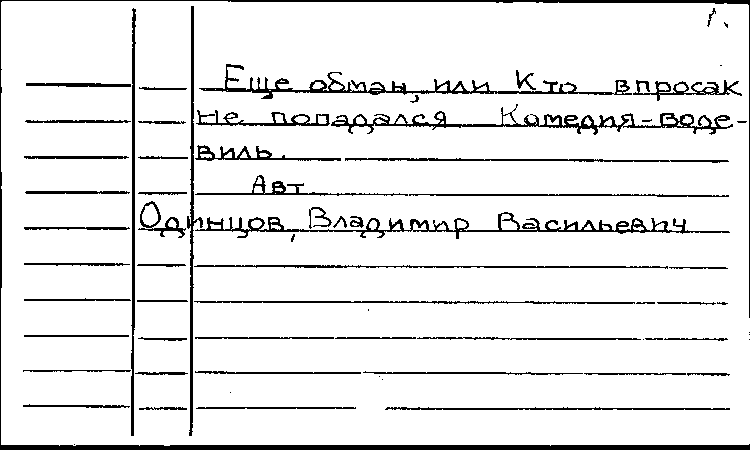 1.
Еще обман, или Кто впросак
не попадался Комедия-воде-
виль.
Авт.
Одинцов, Владимир Васильевич